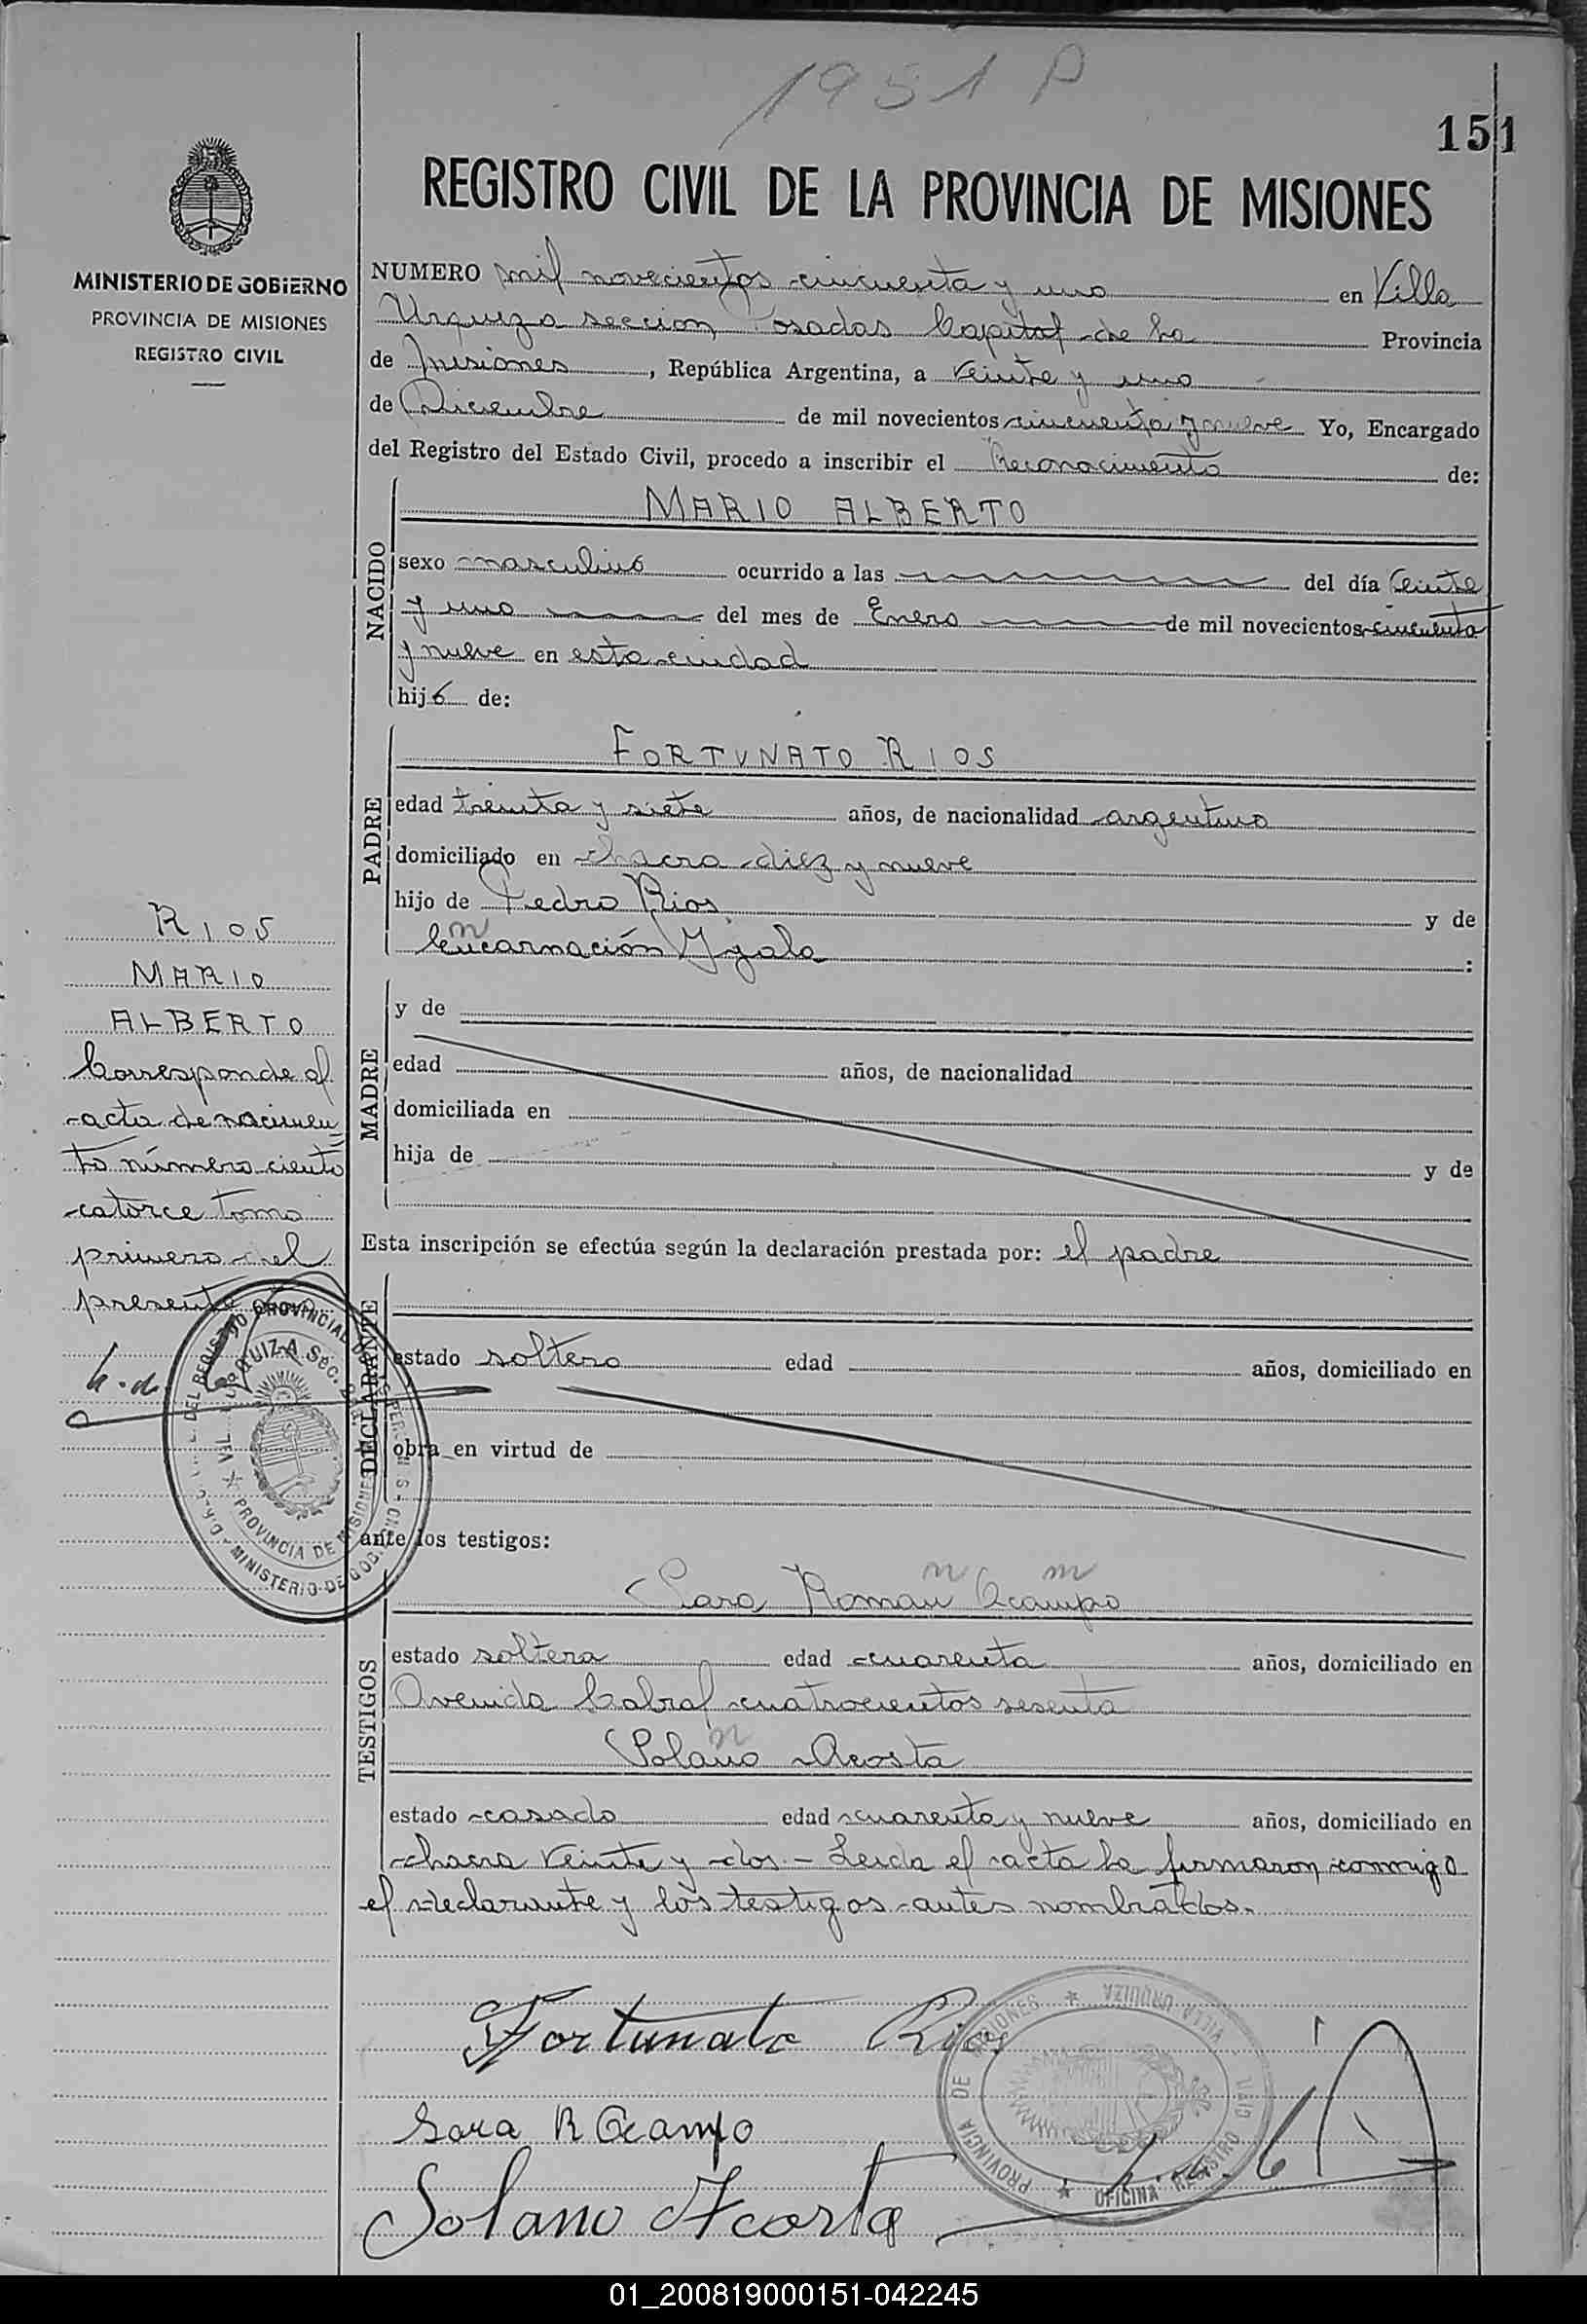 1951 P
151
REGISTRO CIVIL DE LA PROVINCIA DE MISIONES
MINISTERIO DE GOBIERNO
PROVINCIA DE MISIONES
REGISTRO CIVIL
NUMERO mil novecientos cincuenta y uno en Villa
Urquiza seccion Posadas Capital de la Provincia
de Misiones, República Argentina, a veinte y uno
de Diciembre de mil novecientos cincuenta y nueve Yo, Encargado
del Registro del Estado Civil, procedo a inscribir el Reconocimiento de:
NACIDO
MARIO ALBERTO
sexo masculino ocurrido a las del día veinte
y uno del mes de Enero de mil novecientos cincuenta
y nueve en esta ciudad
hijo de:
PADRE
FORTUNATO RIOS
edad treinta y siete años, de nacionalidad argentino
domiciliado en chacra diez y nueve
hijo de Pedro Rios y de
Encarnación :
MADRE
y de
edad años, de nacionalidad
domiciliada en
hija de y de
Esta inscripción se efectúa según la declaración prestada por: el padre
DECLARANTE
estado soltero edad años, domiciliado en
obra en virtud de
ante los testigos:
TESTIGOS
Sara Roman Ocampo
estado soltera edad cuarenta años, domiciliado en
Avenida Cabral cuatrocientos sesenta
Solano Acosta
estado casado edad cuarenta y nueve años, domiciliado en
chacra veinte y dos.- Leida el acta la firmaron conmigo
el declarante y los testigos antes nombrados.
Fortunato Rios
Sara R Ocampo
Solano Acosta
RIOS
MARIO
ALBERTO
Corresponde al
acta de nacimien
to número ciento
catorce tomo
primero del
presente
PROVINCIA DE MISIONES * VILLA URQUIZA
OFICINA REGISTRO CIVIL
01_200819000151-042245